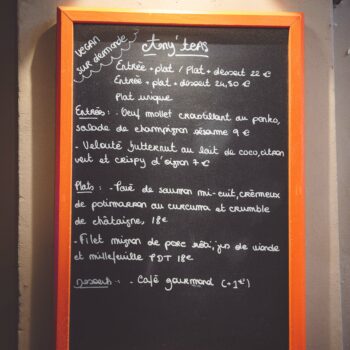 VEGAN
sur demande
Any'TEAS
Entrée + plat / Plat + dessert 22 €
Entrée + plat + dessert 24,50 €
Plat unique
Entrées : - Oeuf mollet croustillant au panko,
salade de champignon sésame 9 €
- Velouté butternut au lait de coco, citron
vert et crispy d'oignon 7 €
Plats : - Pavé de saumon mi-cuit, crémeux
de potimarron au curcuma et crumble
de châtaigne, 18€
- Filet mignon de porc rôti, jus de viande
et millefeuille PDT 18€
Desserts : - Café gourmand (+1€)